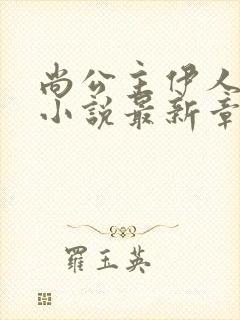 尚公主伊人
小說最新章
羅玉英